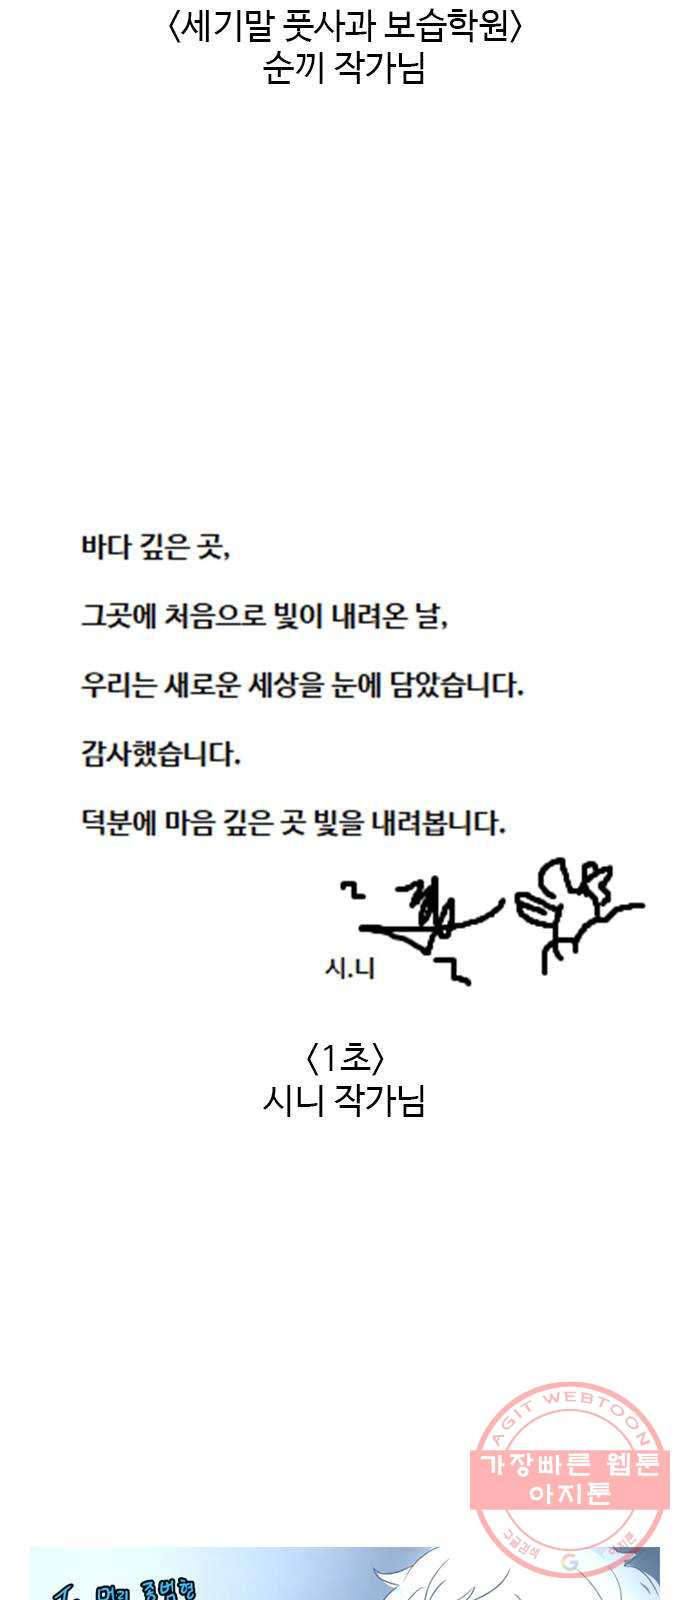 〈세기말 풋사과 보습학원〉
순끼 작가님
바다 깊은 곳,
그곳에 처음으로 빛이 내려온 날,
우리는 새로운 세상을 눈에 담았습니다.
감사했습니다.
덕분에 마음 깊은 곳 빛을 내려봅니다.
시.니
〈1초〉
시니 작가님
AGIT WEBTOON
가장빠른 웹툰
아지툰
구글검색 G 아지툰
종범형